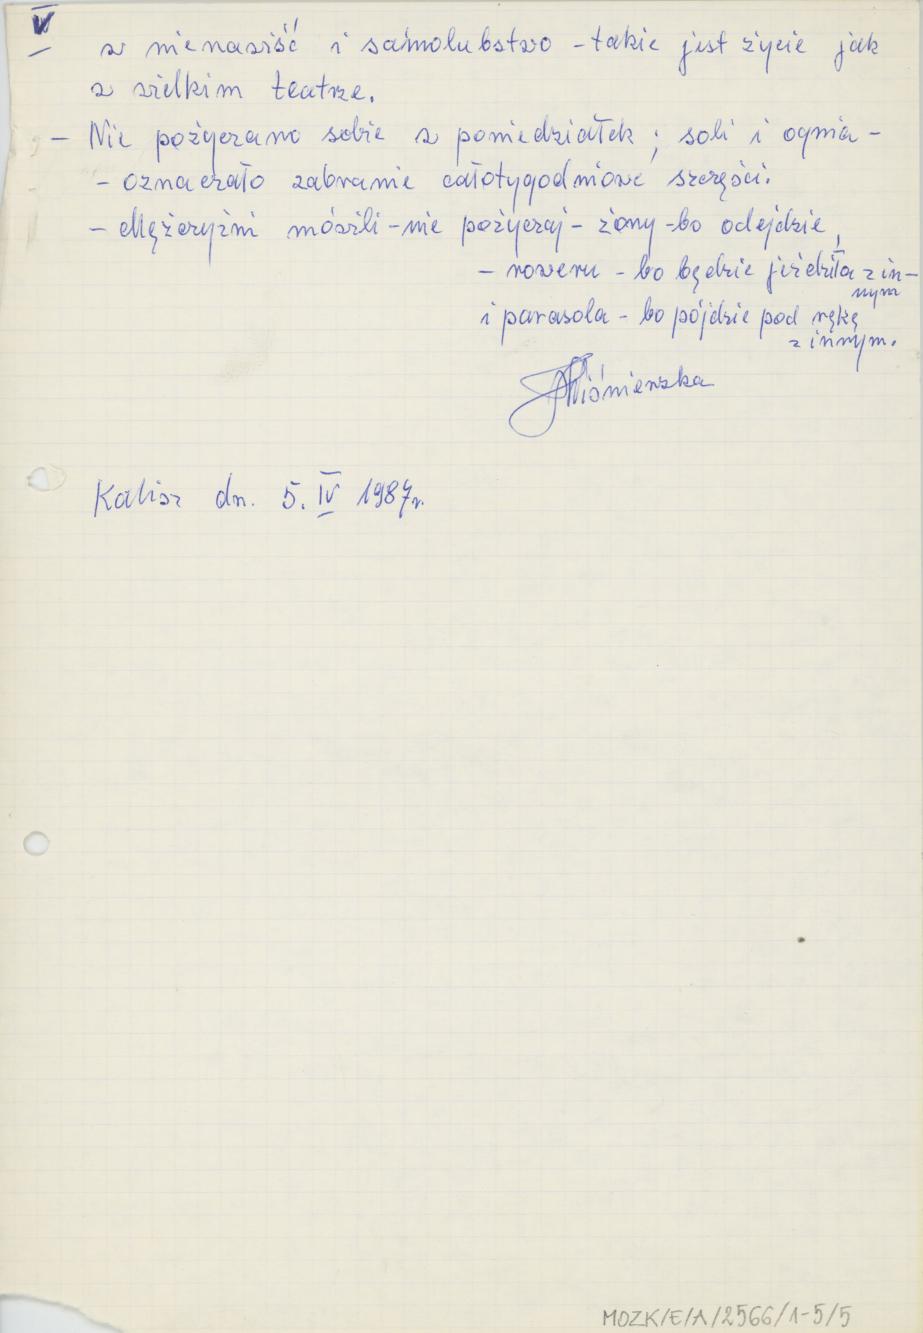 V
w nienawiść i samolubstwo - takie jest życie jak
w wielkim teatrze.
- Nie pożyczano sobie w poniedziałek; soli i ognia -
- oznaczało zabranie całotygodniowe szczęści.
- Mężczyźni mówili - nie pożyczaj - żony - bo odejdzie,
- roweru - bo będzie jeździła z in-
nym
i parasola - bo pójdzie pod rękę
z innym.
Wiśniewska
Kalisz dn. 5. IV 1987r.
MOZK/E/A/2566/1-5/5